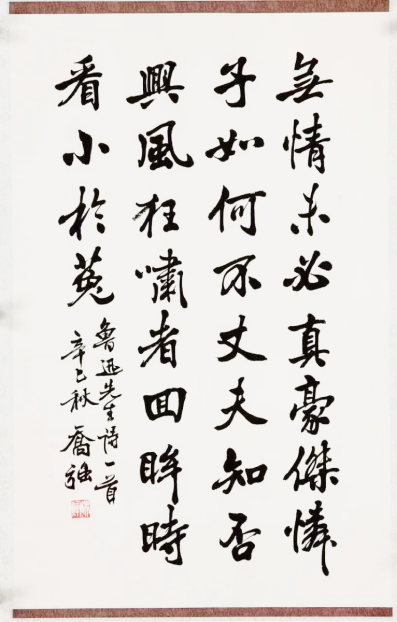 無情未必真豪傑憐
子如何不丈夫知否
興風狂嘯者回眸時
看小於菟
魯迅先生詩一首
辛巳秋 喬強